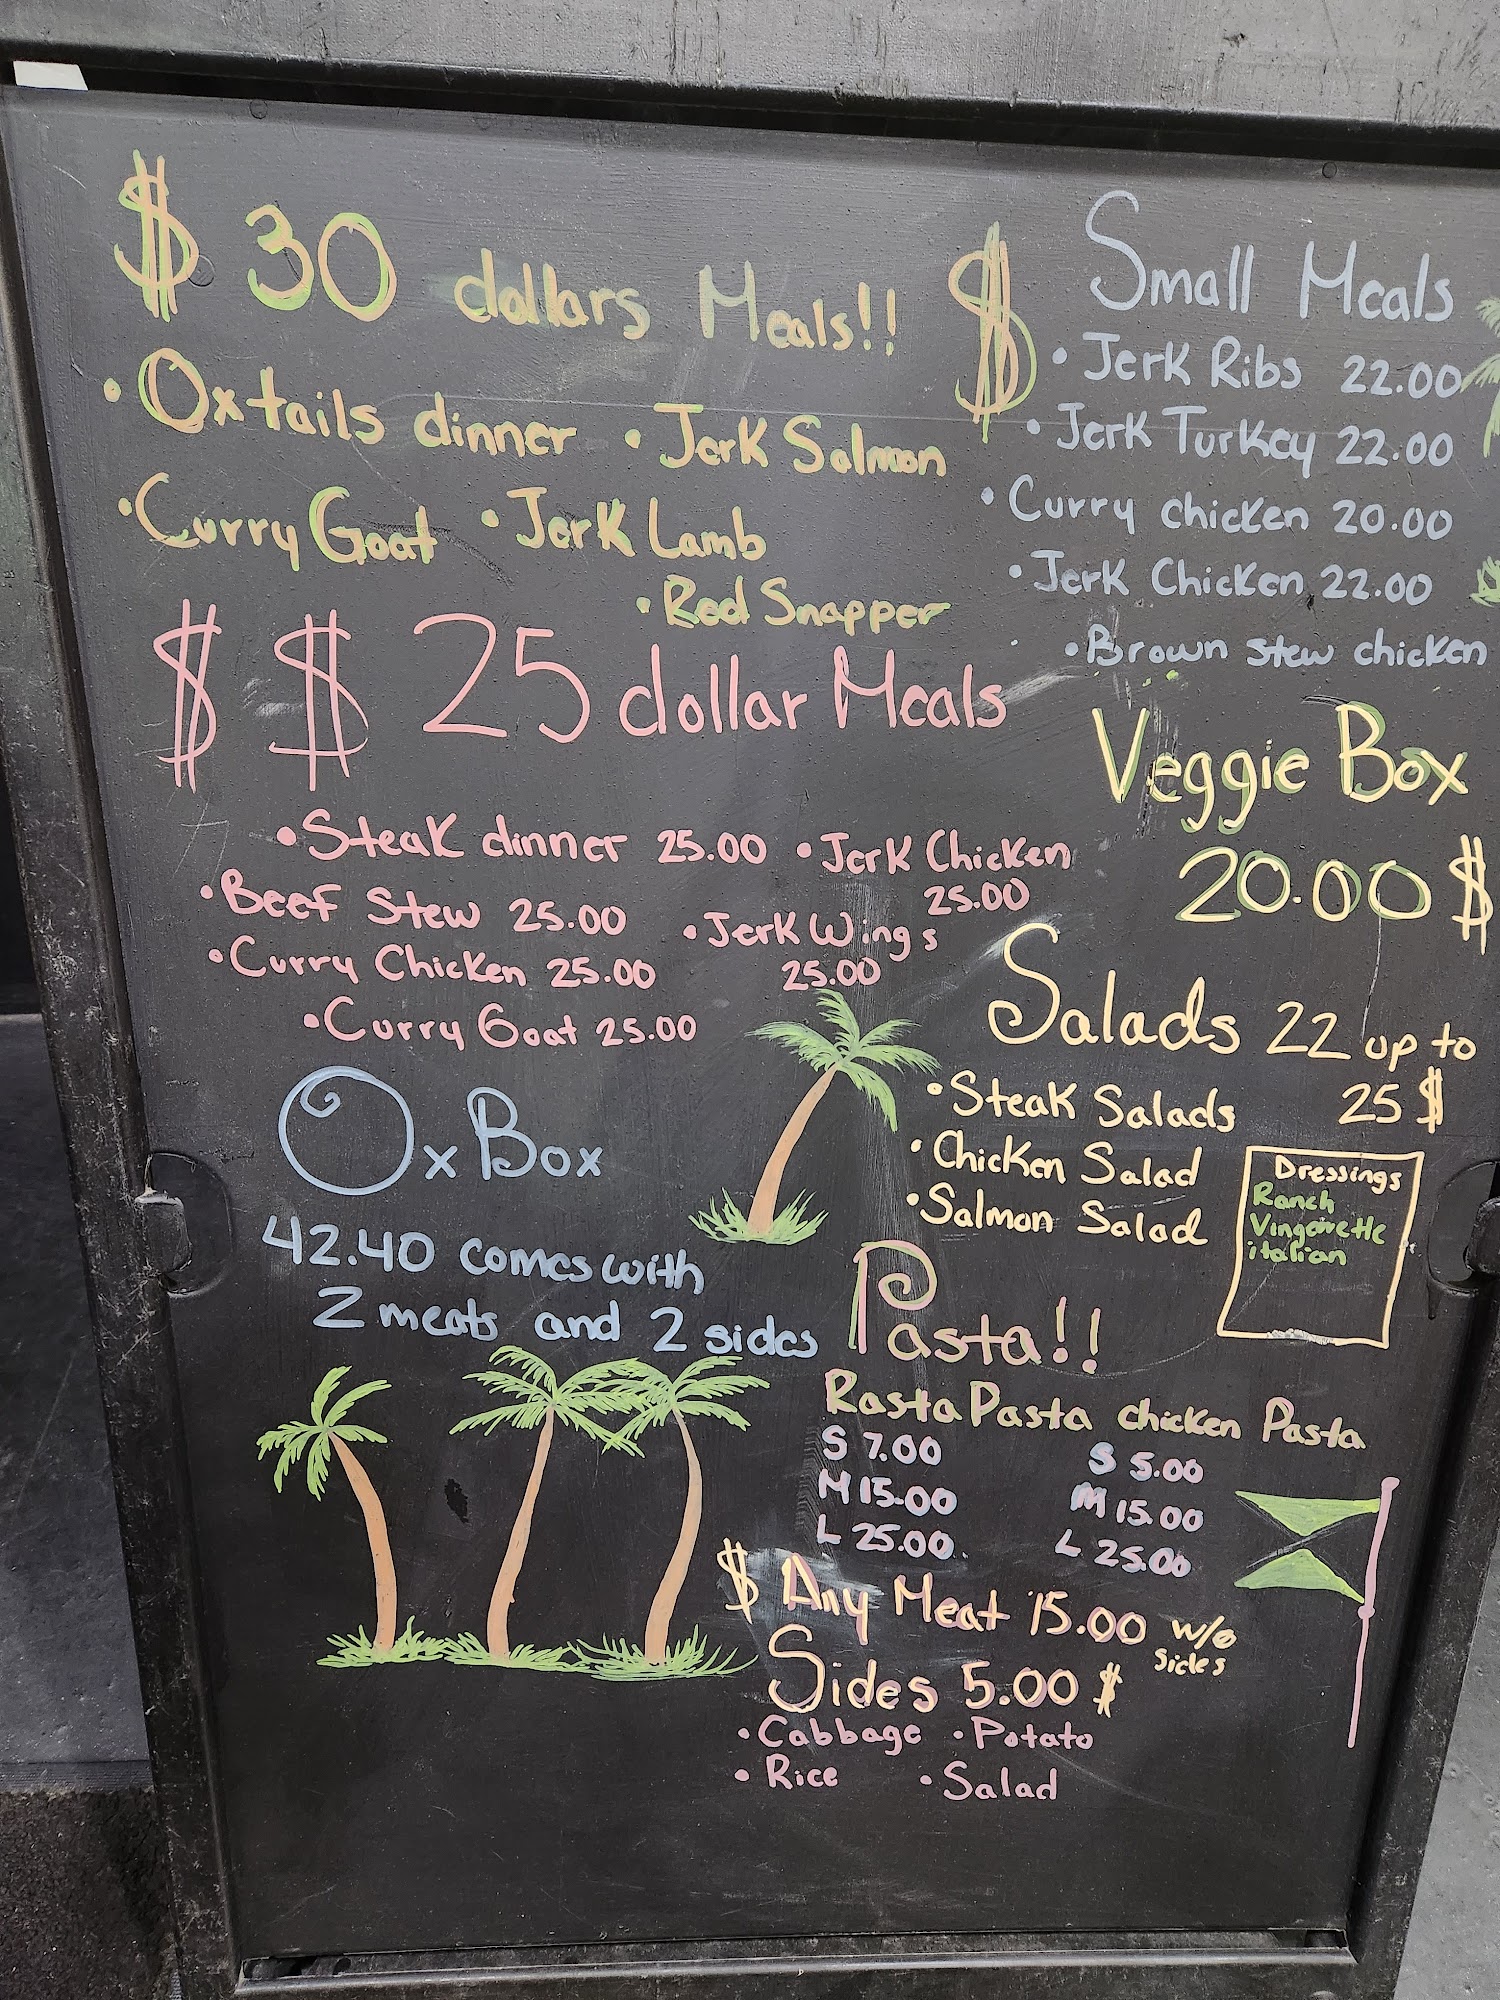 $ 30 dollars Meals!!
• Oxtails dinner • Jerk Salmon
• Curry Goat • Jerk Lamb
• Red Snapper
$ $ 25 dollar Meals
• Steak dinner 25.00 • Jerk Chicken
25.00
• Beef Stew 25.00 • Jerk Wings
25.00
• Curry Chicken 25.00
• Curry Goat 25.00
Ox Box
42.40 comes with
2 meats and 2 sides
$ Small Meals
• Jerk Ribs 22.00
• Jerk Turkey 22.00
• Curry chicken 20.00
• Jerk Chicken 22.00
• Brown stew chicken
Veggie Box
20.00 $
Salads 22 up to
25 $
• Steak Salads
• Chicken Salad
• Salmon Salad
Dressings
Ranch
Vingairette
italian
Pasta!!
Rasta Pasta chicken Pasta
S 7.00 S 5.00
M 15.00 M 15.00
L 25.00 L 25.00
$ Any Meat 15.00 w/o
sides
Sides 5.00 $
• Cabbage • Potato
• Rice • Salad